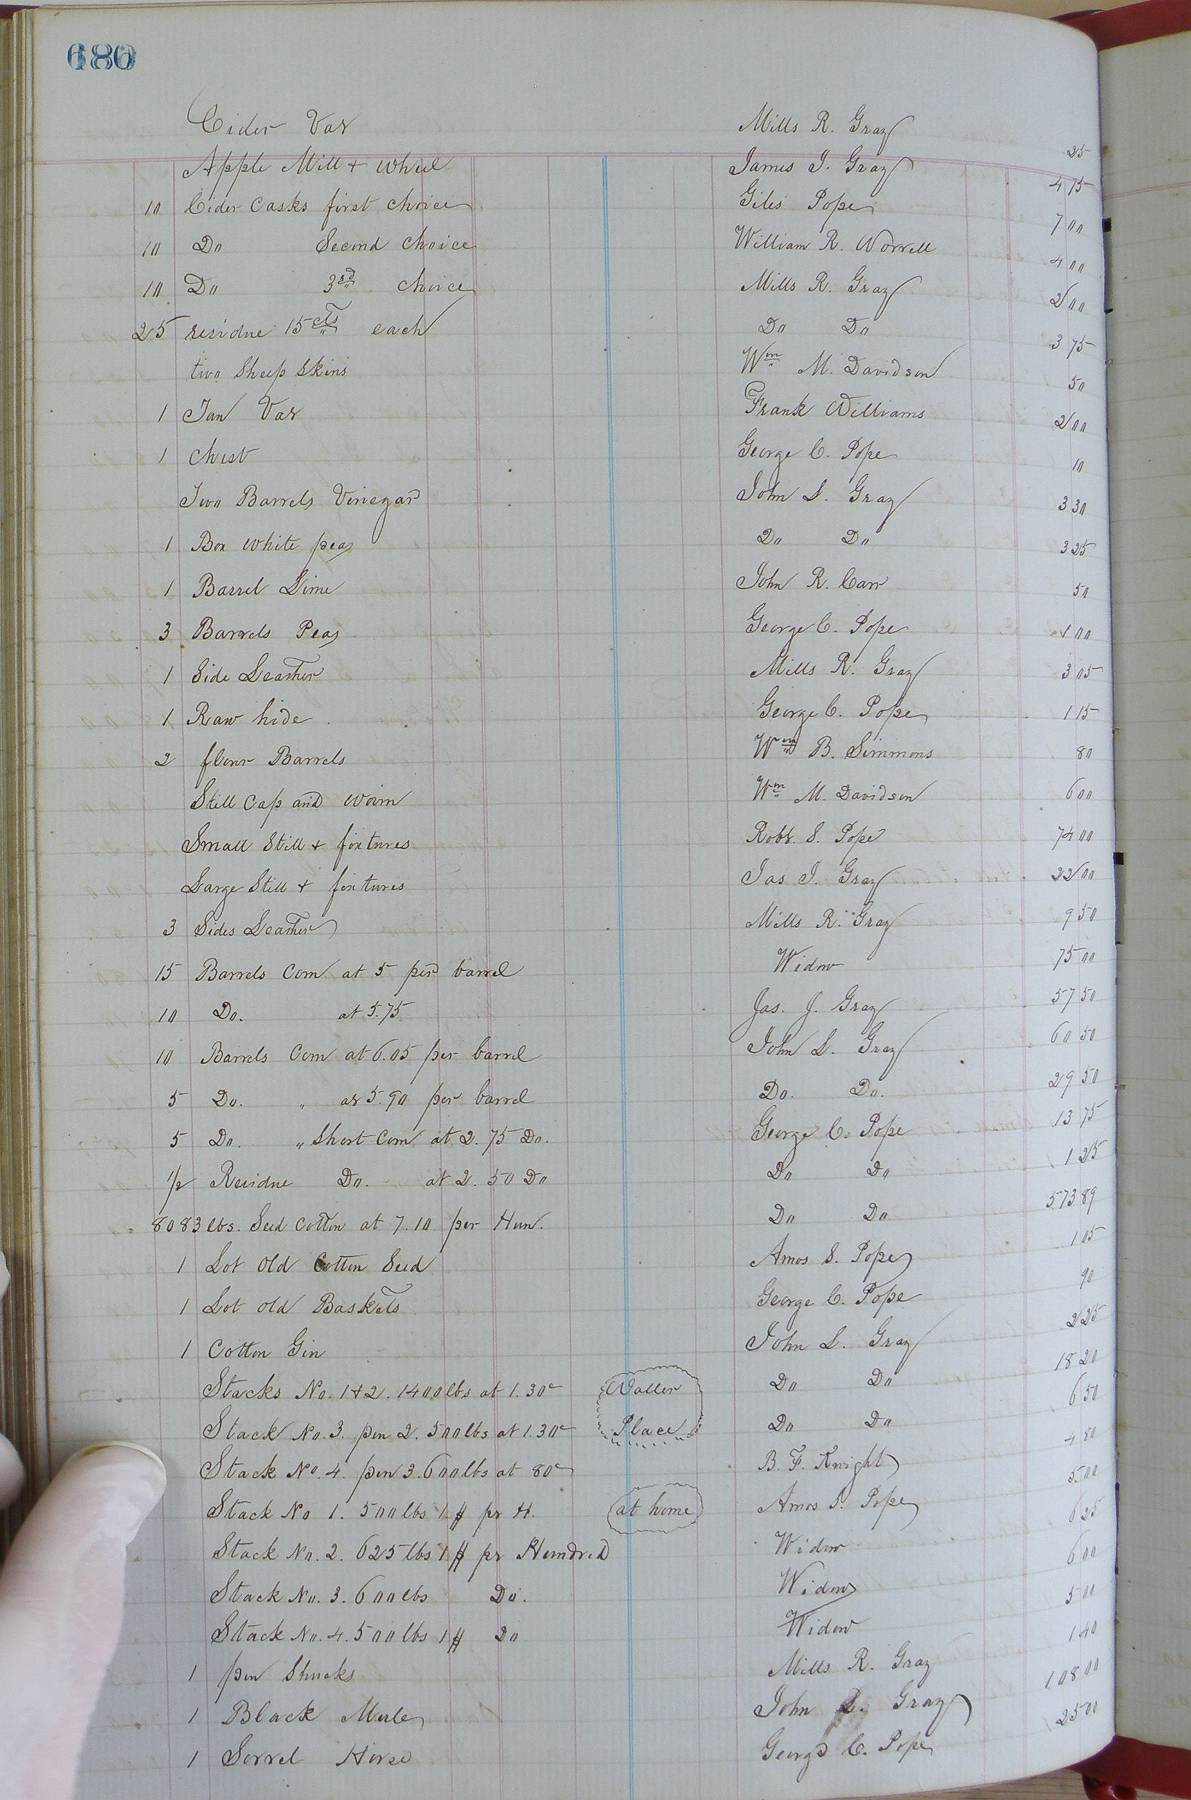 680
Cider Vat Mills R. Gray 25
Apple Mill + wheel James J. Gray 4 75
10 Cider Casks first choice Giles Pope 7 00
10 Do Second choice William R. Worrell 4 00
10 Do 3rd choice Mills R. Gray 2 00
25 residue 15 cts each Do Do 3 75
two Sheep Skins Wm M. Davidson 50
1 Tan Vat Frank Williams 2 00
1 Chest George C. Pope 10
Two Barrels Vinegar John L. Gray 3 30
1 Box white peas Do Do 3 25
1 Barrel Lime John R. Carr 50
3 Barrels Peas George C. Pope 1 00
1 Side Leather Mills R. Gray 3 05
1 Raw hide George C. Pope 1 15
2 flour Barrels Wm B. Simmons 80
Still Cap and worm Wm M. Davidson 6 00
Small Still + fixtures Robt. S. Pope 74 00
Large Still + fixtures Jas J. Gray 22 00
3 Sides Leather Mills R. Gray 9 50
15 Barrels Corn at 5 per barrel Widow 75 00
10 Do. at 5.75 Jas. J. Gray 57 50
10 Barrels Corn at 6.05 per barrel John L. Gray 60 50
5 Do. " at 5.90 per barrel Do. Do. 29 50
5 Do. " Short Corn at 2.75 Do. George C. Pope 13 75
1/2 Residue Do. at 2.50 Do Do Do 1 25
8083 lbs. Seed Cotton at 7.10 per Hun. Do Do 573 89
1 Lot old Cotton Seed Amos S. Pope 1 05
1 Lot old Baskets George C. Pope 90
1 Cotton Gin John L. Gray 2 25
Stacks No. 1+2. 1400 lbs at 1.30c Waller Do Do 18 20
Stack No. 3. pen 2. 500 lbs at 1.30c Place Do Do 6 50
Stack No. 4. pen 3. 600 lbs at 80c B. F. Knight 4 80
Stack No 1. 500 lbs 1 $ pr H. at home Amos S. Pope 5 00
Stack No. 2. 625 lbs 1 $ pr Hundred Widow 6 25
Stack No. 3. 600 lbs Do. Widow 6 00
Stack No. 4. 500 lbs 1 $ Do Widow 5 00
1 pen Shucks Mills R. Gray 1 40
1 Black Mule John L. Gray 108 00
1 Sorrel Horse George C. Pope 25 00